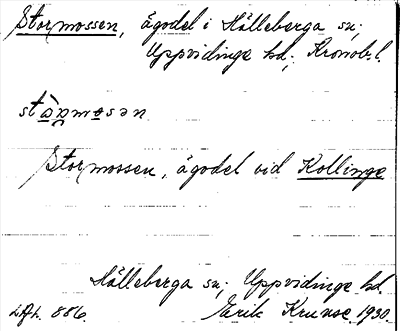 Stormossen, ägodel i Hälleberga sn;
Uppvidinge hd; Kronob. l.
Stormossen, ägodel vid Kollinge
Hälleberga sn; Uppvidinge hd.
L.A. 886. Erik Kruuse 1930.